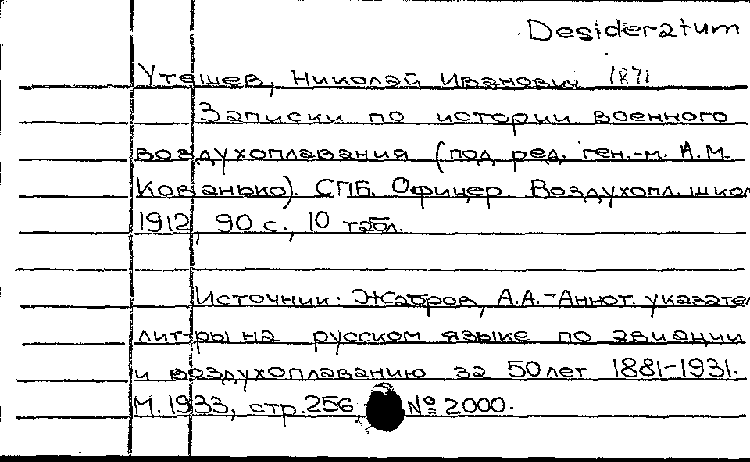 Desideratum
Утешев, Николай Иванович 1871
Записки по истории военного
воздухоплавания (под ред. ген.-м. А.М.
Кованько). СПБ. Офицер. Воздухопл. школ
1912, 90 с., 10 табл.
Источник: Жабров, А.А.-Аннот. указате
лит-ры на русском языке по авиации
и воздухоплаванию за 50 лет 1881-1931.
М. 1933, стр. 256, № 2000.